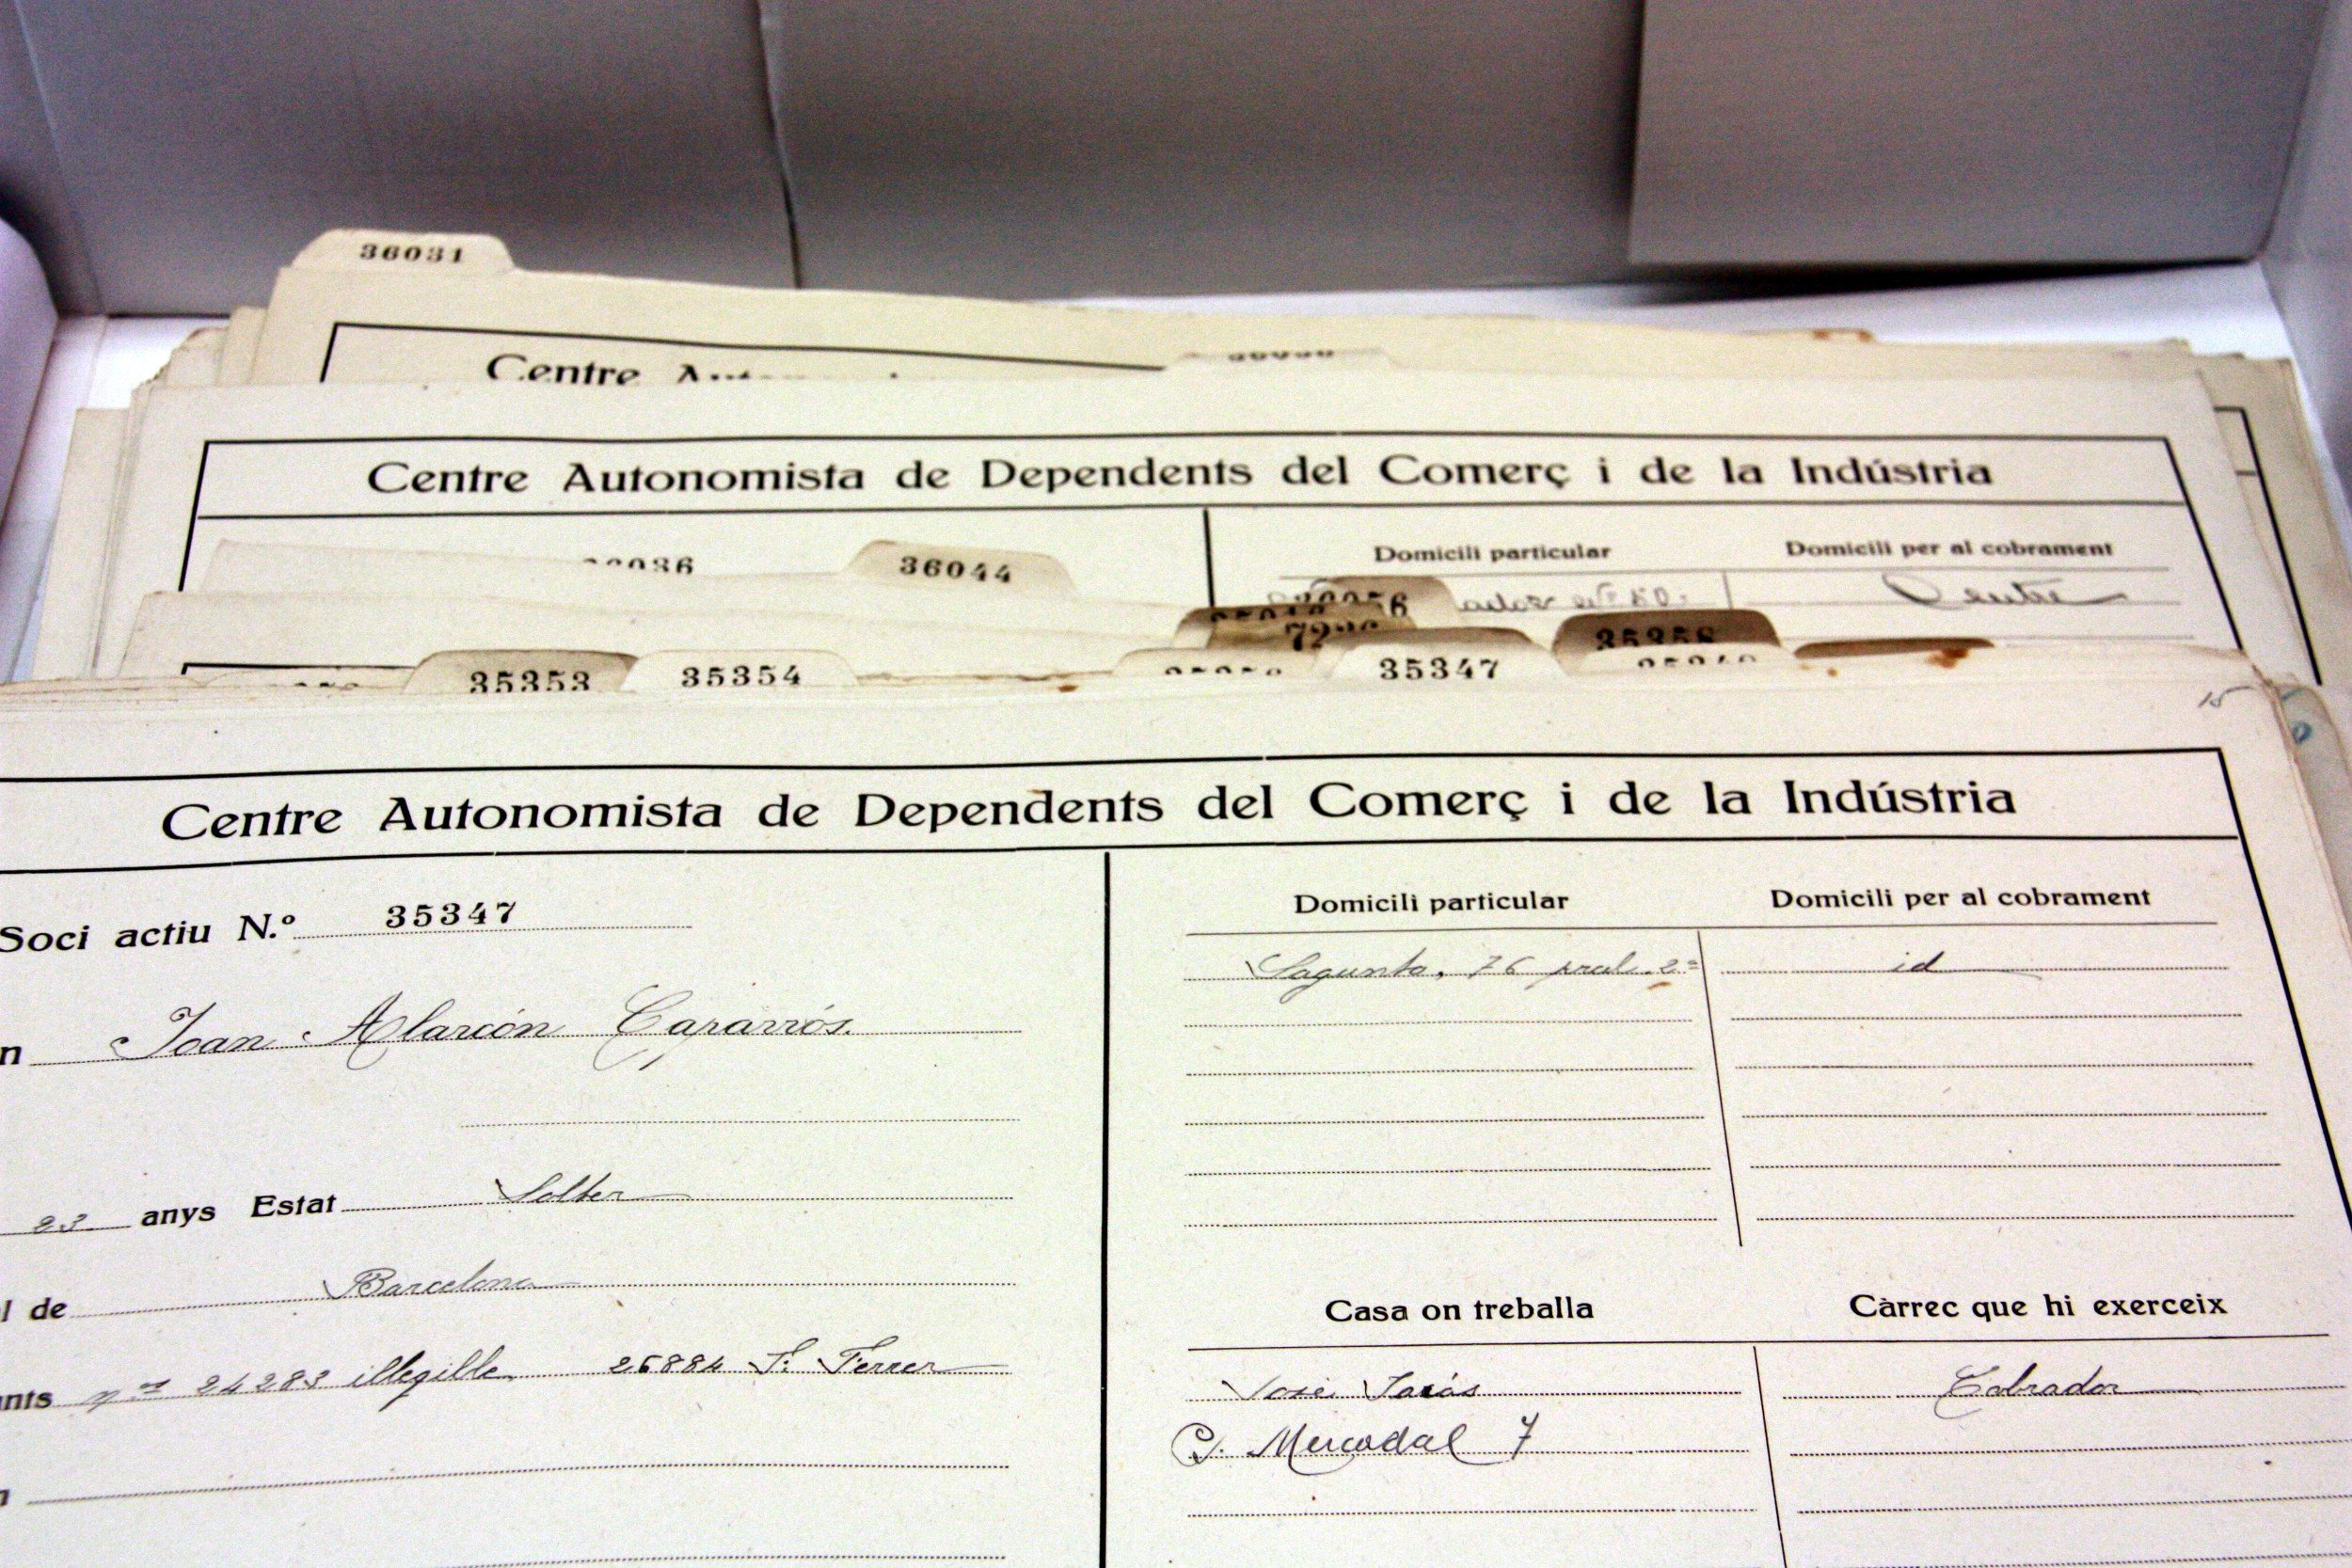 36031
Centre
Centre Autonomista de Dependents del Comerç i de la Indústria
Domicili particular Domicili per al cobrament
36044
Centre
35353 35354 35347
15
Centre Autonomista de Dependents del Comerç i de la Indústria
Soci actiu N.º 35347
Domicili particular Domicili per al cobrament
Sagunto, 76 pral. 2ª id
n Joan Alarcón Caparrós
23 anys Estat Solter
l de Barcelona
Casa on treballa Càrrec que hi exerceix
nts nos 24283 illegille 26884 F. Ferrer
José Cobrador
P. Mercadal 7